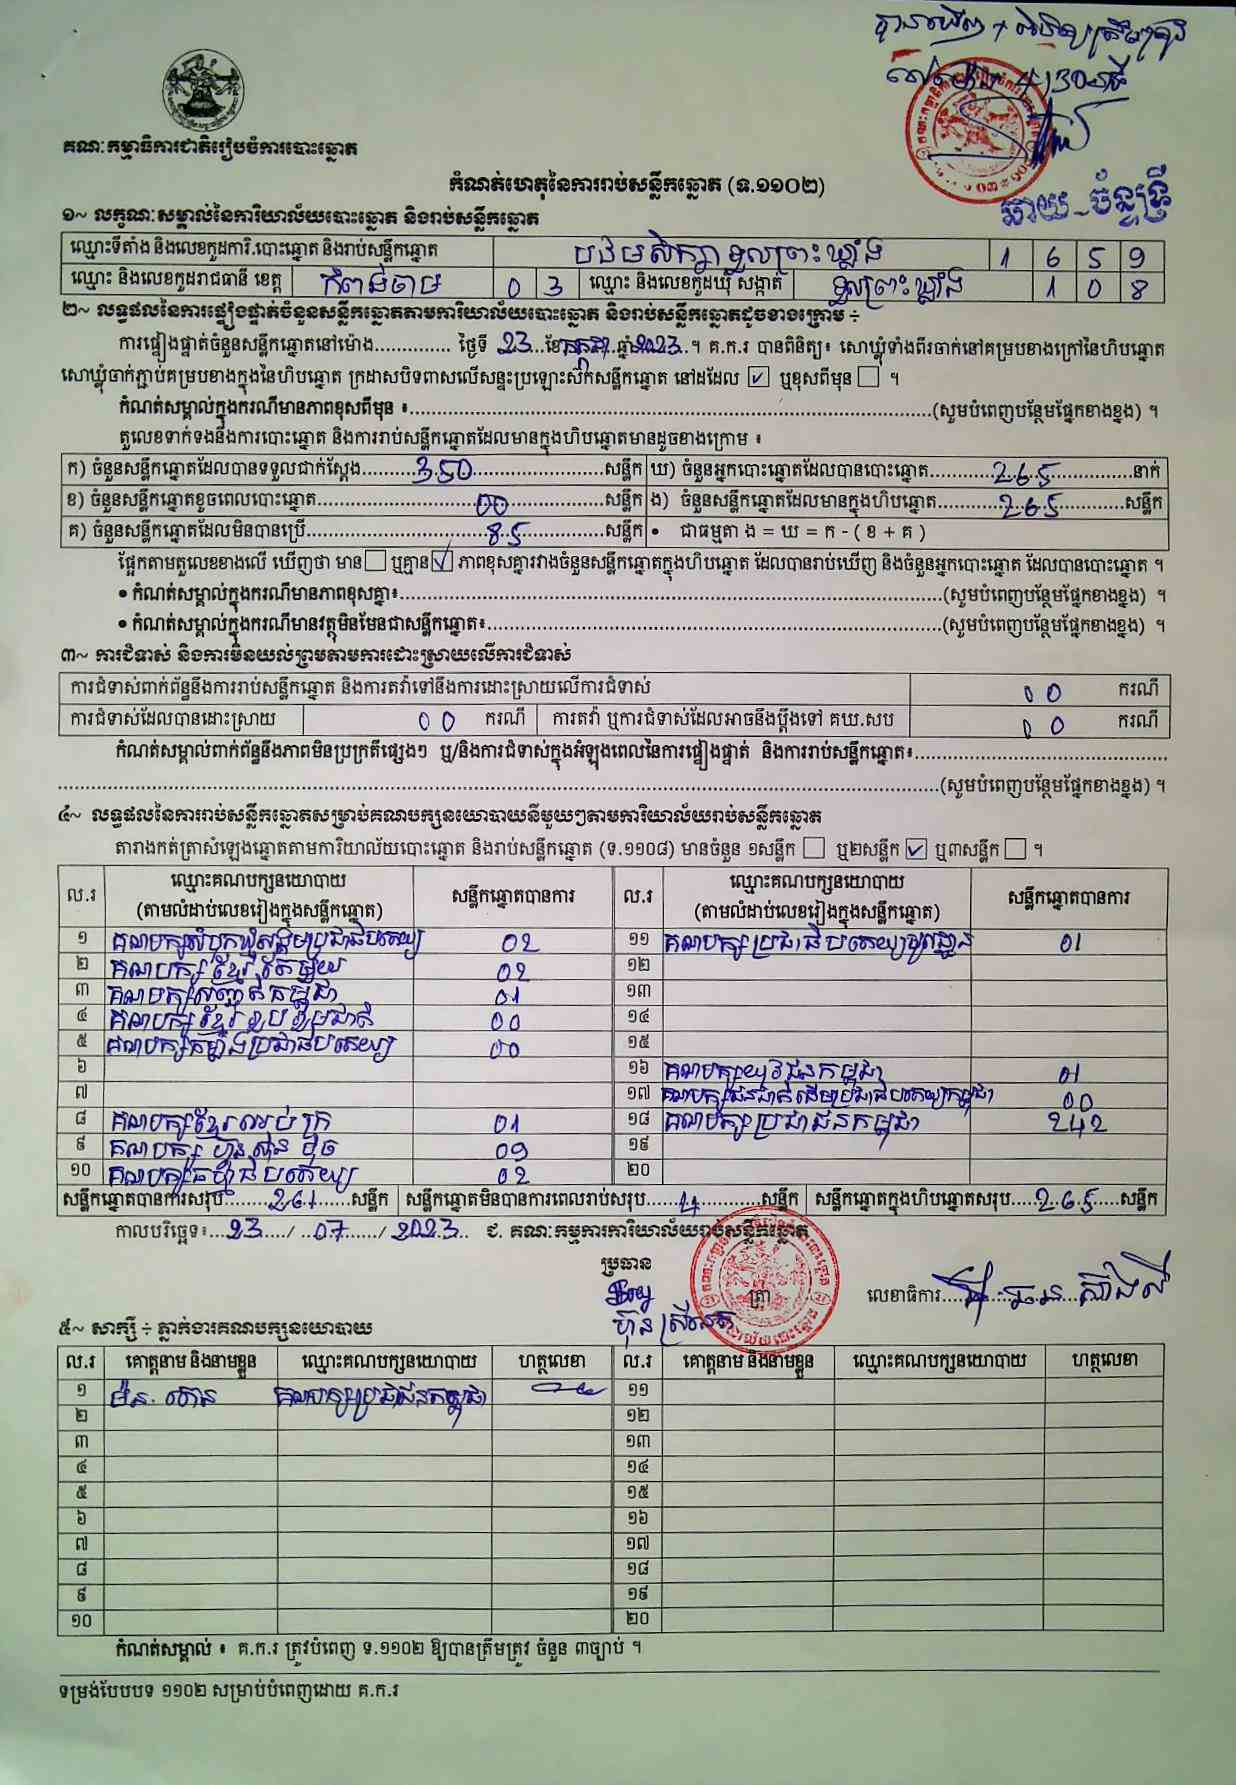 គណៈកម្មាធិការជាតិរៀបចំការបោះឆ្នោត
4:30នាទី
ឆាយ ច័ន្ទទ្រី
កំណត់ហេតុនៃការរាប់សន្លឹកឆ្នោត (ទ.១១០២)
១~ លក្ខណៈសម្គាល់នៃការិយាល័យបោះឆ្នោត និងរាប់សន្លឹកឆ្នោត
ឈ្មោះទីតាំង និងលេខកូដការិ.បោះឆ្នោត និងរាប់សន្លឹកឆ្នោត បឋមសិក្សាទួលព្រះឃ្លាំង 1 6 5 9
ឈ្មោះ និងលេខកូដរាជធានី ខេត្ត កំពង់ចាម 0 3 ឈ្មោះ និងលេខកូដឃុំ សង្កាត់ ទួលព្រះឃ្លាំង 1 0 8
២~ លទ្ធផលនៃការផ្ទៀងផ្ទាត់ចំនួនសន្លឹកឆ្នោតតាមការិយាល័យបោះឆ្នោត និងរាប់សន្លឹកឆ្នោតដូចខាងក្រោម ÷
ការផ្ទៀងផ្ទាត់ចំនួនសន្លឹកឆ្នោតនៅម៉ោង.............. ថ្ងៃទី 23 ខែកក្កដា ឆ្នាំ2023 ។ គ.ក.រ បានពិនិត្យ៖ សោឃ្លុំទាំងពីរចាក់នៅគម្របខាងក្រៅនៃហិបឆ្នោត
សោឃ្លុំចាក់ភ្ជាប់គម្របខាងក្នុងនៃហិបឆ្នោត ក្រដាសបិទពាសលើសន្ទះប្រឡោះស៊កសន្លឹកឆ្នោត នៅដដែល ☑ ឬខុសពីមុន ☐ ។
កំណត់សម្គាល់ក្នុងករណីមានភាពខុសពីមុន ៖..............(សូមបំពេញបន្ថែមផ្នែកខាងខ្នង) ។
តួលេខទាក់ទងនឹងការបោះឆ្នោត និងការរាប់សន្លឹកឆ្នោតដែលមានក្នុងហិបឆ្នោតមានដូចខាងក្រោម ៖
ក) ចំនួនសន្លឹកឆ្នោតដែលបានទទួលជាក់ស្តែង..........350..........សន្លឹក ឃ) ចំនួនអ្នកបោះឆ្នោតដែលបានបោះឆ្នោត..........265..........នាក់
ខ) ចំនួនសន្លឹកឆ្នោតខូចពេលបោះឆ្នោត..........00..........សន្លឹក ង) ចំនួនសន្លឹកឆ្នោតដែលមានក្នុងហិបឆ្នោត..........265..........សន្លឹក
គ) ចំនួនសន្លឹកឆ្នោតដែលមិនបានប្រើ..........85..........សន្លឹក • ជាធម្មតា ង = ឃ = ក - ( ខ + គ )
ផ្អែកតាមតួលេខខាងលើ ឃើញថា មាន ☐ ឬគ្មាន ☑ ភាពខុសគ្នារវាងចំនួនសន្លឹកឆ្នោតក្នុងហិបឆ្នោត ដែលបានរាប់ឃើញ និងចំនួនអ្នកបោះឆ្នោត ដែលបានបោះឆ្នោត ។
• កំណត់សម្គាល់ក្នុងករណីមានភាពខុសគ្នា៖..............(សូមបំពេញបន្ថែមផ្នែកខាងខ្នង) ។
• កំណត់សម្គាល់ក្នុងករណីមានវត្ថុមិនមែនជាសន្លឹកឆ្នោត៖..............(សូមបំពេញបន្ថែមផ្នែកខាងខ្នង) ។
៣~ ការជំទាស់ និងការមិនយល់ព្រមតាមការដោះស្រាយលើការជំទាស់
ការជំទាស់ពាក់ព័ន្ធនឹងការរាប់សន្លឹកឆ្នោត និងការតវ៉ាទៅនឹងការដោះស្រាយលើការជំទាស់ 00 ករណី
ការជំទាស់ដែលបានដោះស្រាយ 00 ករណី ការតវ៉ា ឬការជំទាស់ដែលអាចនឹងប្តឹងទៅ គឃ.សប 00 ករណី
កំណត់សម្គាល់ពាក់ព័ន្ធនឹងភាពមិនប្រក្រតីផ្សេងៗ ឬ/និងការជំទាស់ក្នុងអំឡុងពេលនៃការផ្ទៀងផ្ទាត់ និងការរាប់សន្លឹកឆ្នោត៖..............
..............(សូមបំពេញបន្ថែមផ្នែកខាងខ្នង) ។
៤~ លទ្ធផលនៃការរាប់សន្លឹកឆ្នោតសម្រាប់គណបក្សនយោបាយនីមួយៗតាមការិយាល័យរាប់សន្លឹកឆ្នោត
តារាងកត់ត្រាសំឡេងឆ្នោតតាមការិយាល័យបោះឆ្នោត និងរាប់សន្លឹកឆ្នោត (ទ.១១០៨) មានចំនួន ១សន្លឹក ☐ ឬ២សន្លឹក ☑ ឬ៣សន្លឹក ☐ ។
ល.រ ឈ្មោះគណបក្សនយោបាយ សន្លឹកឆ្នោតបានការ ល.រ ឈ្មោះគណបក្សនយោបាយ សន្លឹកឆ្នោតបានការ
(តាមលំដាប់លេខរៀងក្នុងសន្លឹកឆ្នោត) (តាមលំដាប់លេខរៀងក្នុងសន្លឹកឆ្នោត)
១ គណបក្សសំបុកឃ្មុំសង្គមប្រជាធិបតេយ្យ 02 ១១ គណបក្សប្រជាធិបតេយ្យមូលដ្ឋាន 01
២ គណបក្សខ្មែរតែមួយ 02 ១២
៣ គណបក្សសញ្ជាតិកម្ពុជា 01 ១៣
៤ គណបក្សខ្មែររួបរួមជាតិ 00 ១៤
៥ គណបក្សកម្លាំងប្រជាធិបតេយ្យ 00 ១៥
៦ ១៦ គណបក្សយុវជនកម្ពុជា 01
៧ ១៧ គណបក្សជនជាតិដើមប្រជាធិបតេយ្យកម្ពុជា 00
៨ គណបក្សខ្មែរឈប់ក្រ 01 ១៨ គណបក្សប្រជាជនកម្ពុជា 242
៩ គណបក្សហ៊្វុនស៊ិនប៉ិច 09 ១៩
១០ គណបក្សធម្មាធិបតេយ្យ 02 ២០
សន្លឹកឆ្នោតបានការសរុប.......261.......សន្លឹក សន្លឹកឆ្នោតមិនបានការពេលរាប់សរុប.......4.......សន្លឹក សន្លឹកឆ្នោតក្នុងហិបឆ្នោតសរុប.....265.....សន្លឹក
កាលបរិច្ឆេទ៖...23..../...07....../ 2023.. ជ. គណៈកម្មការការិយាល័យរាប់សន្លឹកឆ្នោត
ប្រធាន
ត្រា លេខាធិការ..............
៥~ សាក្សី ÷ ភ្នាក់ងារគណបក្សនយោបាយ
ល.រ គោត្តនាម និងនាមខ្លួន ឈ្មោះគណបក្សនយោបាយ ហត្ថលេខា ល.រ គោត្តនាម និងនាមខ្លួន ឈ្មោះគណបក្សនយោបាយ ហត្ថលេខា
១ គណបក្សប្រជាជនកម្ពុជា ១១
២ ១២
៣ ១៣
៤ ១៤
៥ ១៥
៦ ១៦
៧ ១៧
៨ ១៨
៩ ១៩
១០ ២០
កំណត់សម្គាល់ ៖ គ.ក.រ ត្រូវបំពេញ ទ.១១០២ ឱ្យបានត្រឹមត្រូវ ចំនួន ៣ច្បាប់ ។
ទម្រង់បែបបទ ១១០២ សម្រាប់បំពេញដោយ គ.ក.រ